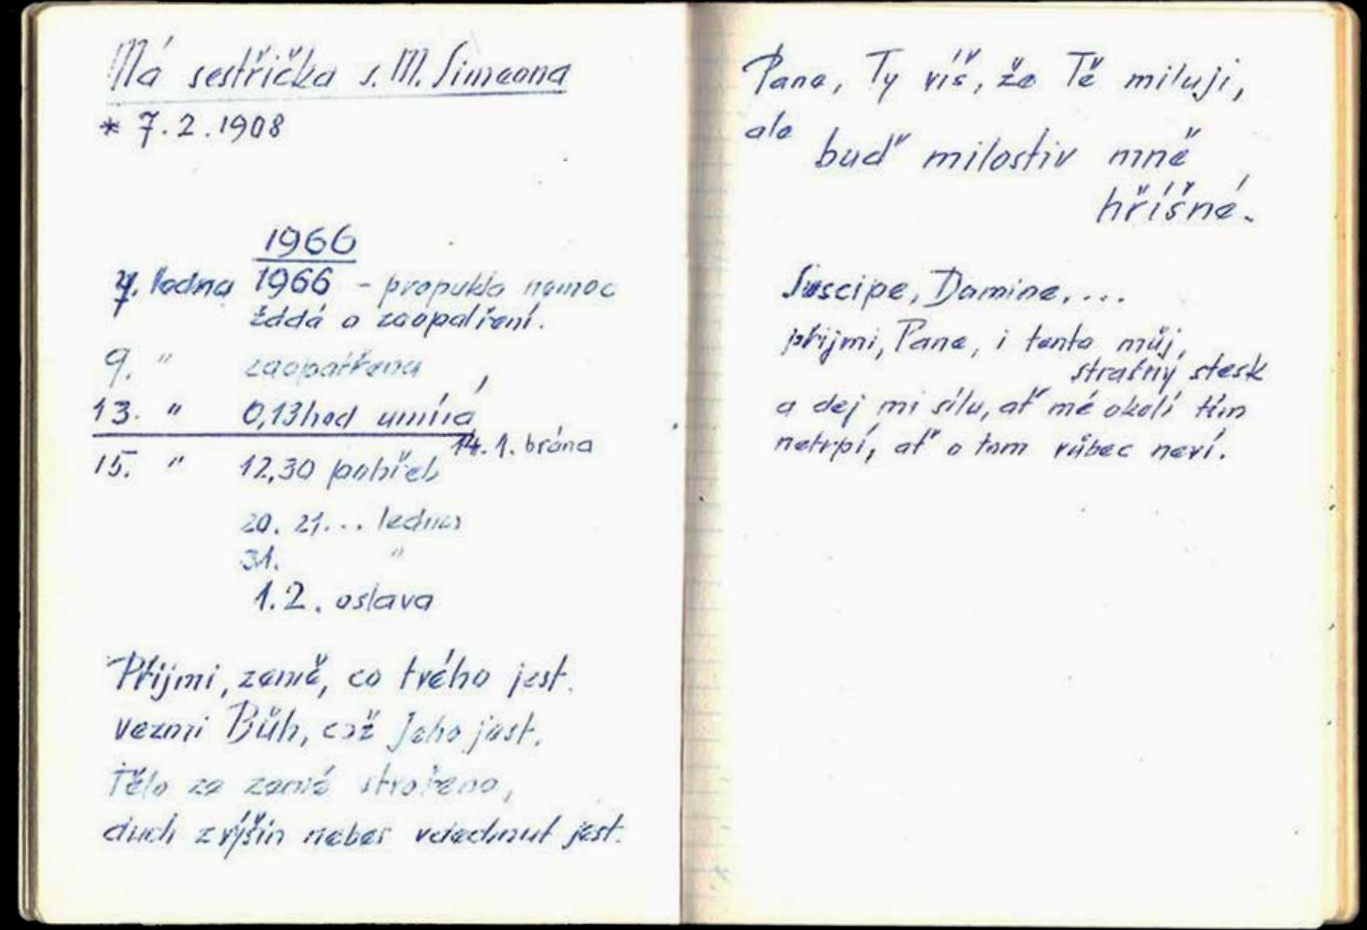 Má sestřička s. M. Simeona
* 7.2.1908
1966
7. ledna 1966 - propukla nemoc
žádá o zaopatření.
9. " zaopatřena
13. " 0,13 hod umírá
14. 1. brána
15. " 12,30 pohřeb
20. 21... ledna
31. "
1.2. oslava
Přijmi, země, co tvého jest.
vezmi Bůh, což Jeho jest.
Tělo ze země stvořeno,
duch z výšin nebes vdechnut jest.
Pane, Ty víš, že Tě miluji,
ale
buď milostiv mně
hříšné.
Suscipe, Domine, ...
přijmi, Pane, i tento můj,
strašný stesk
a dej mi sílu, ať mé okolí tím
netrpí, ať o tom vůbec neví.